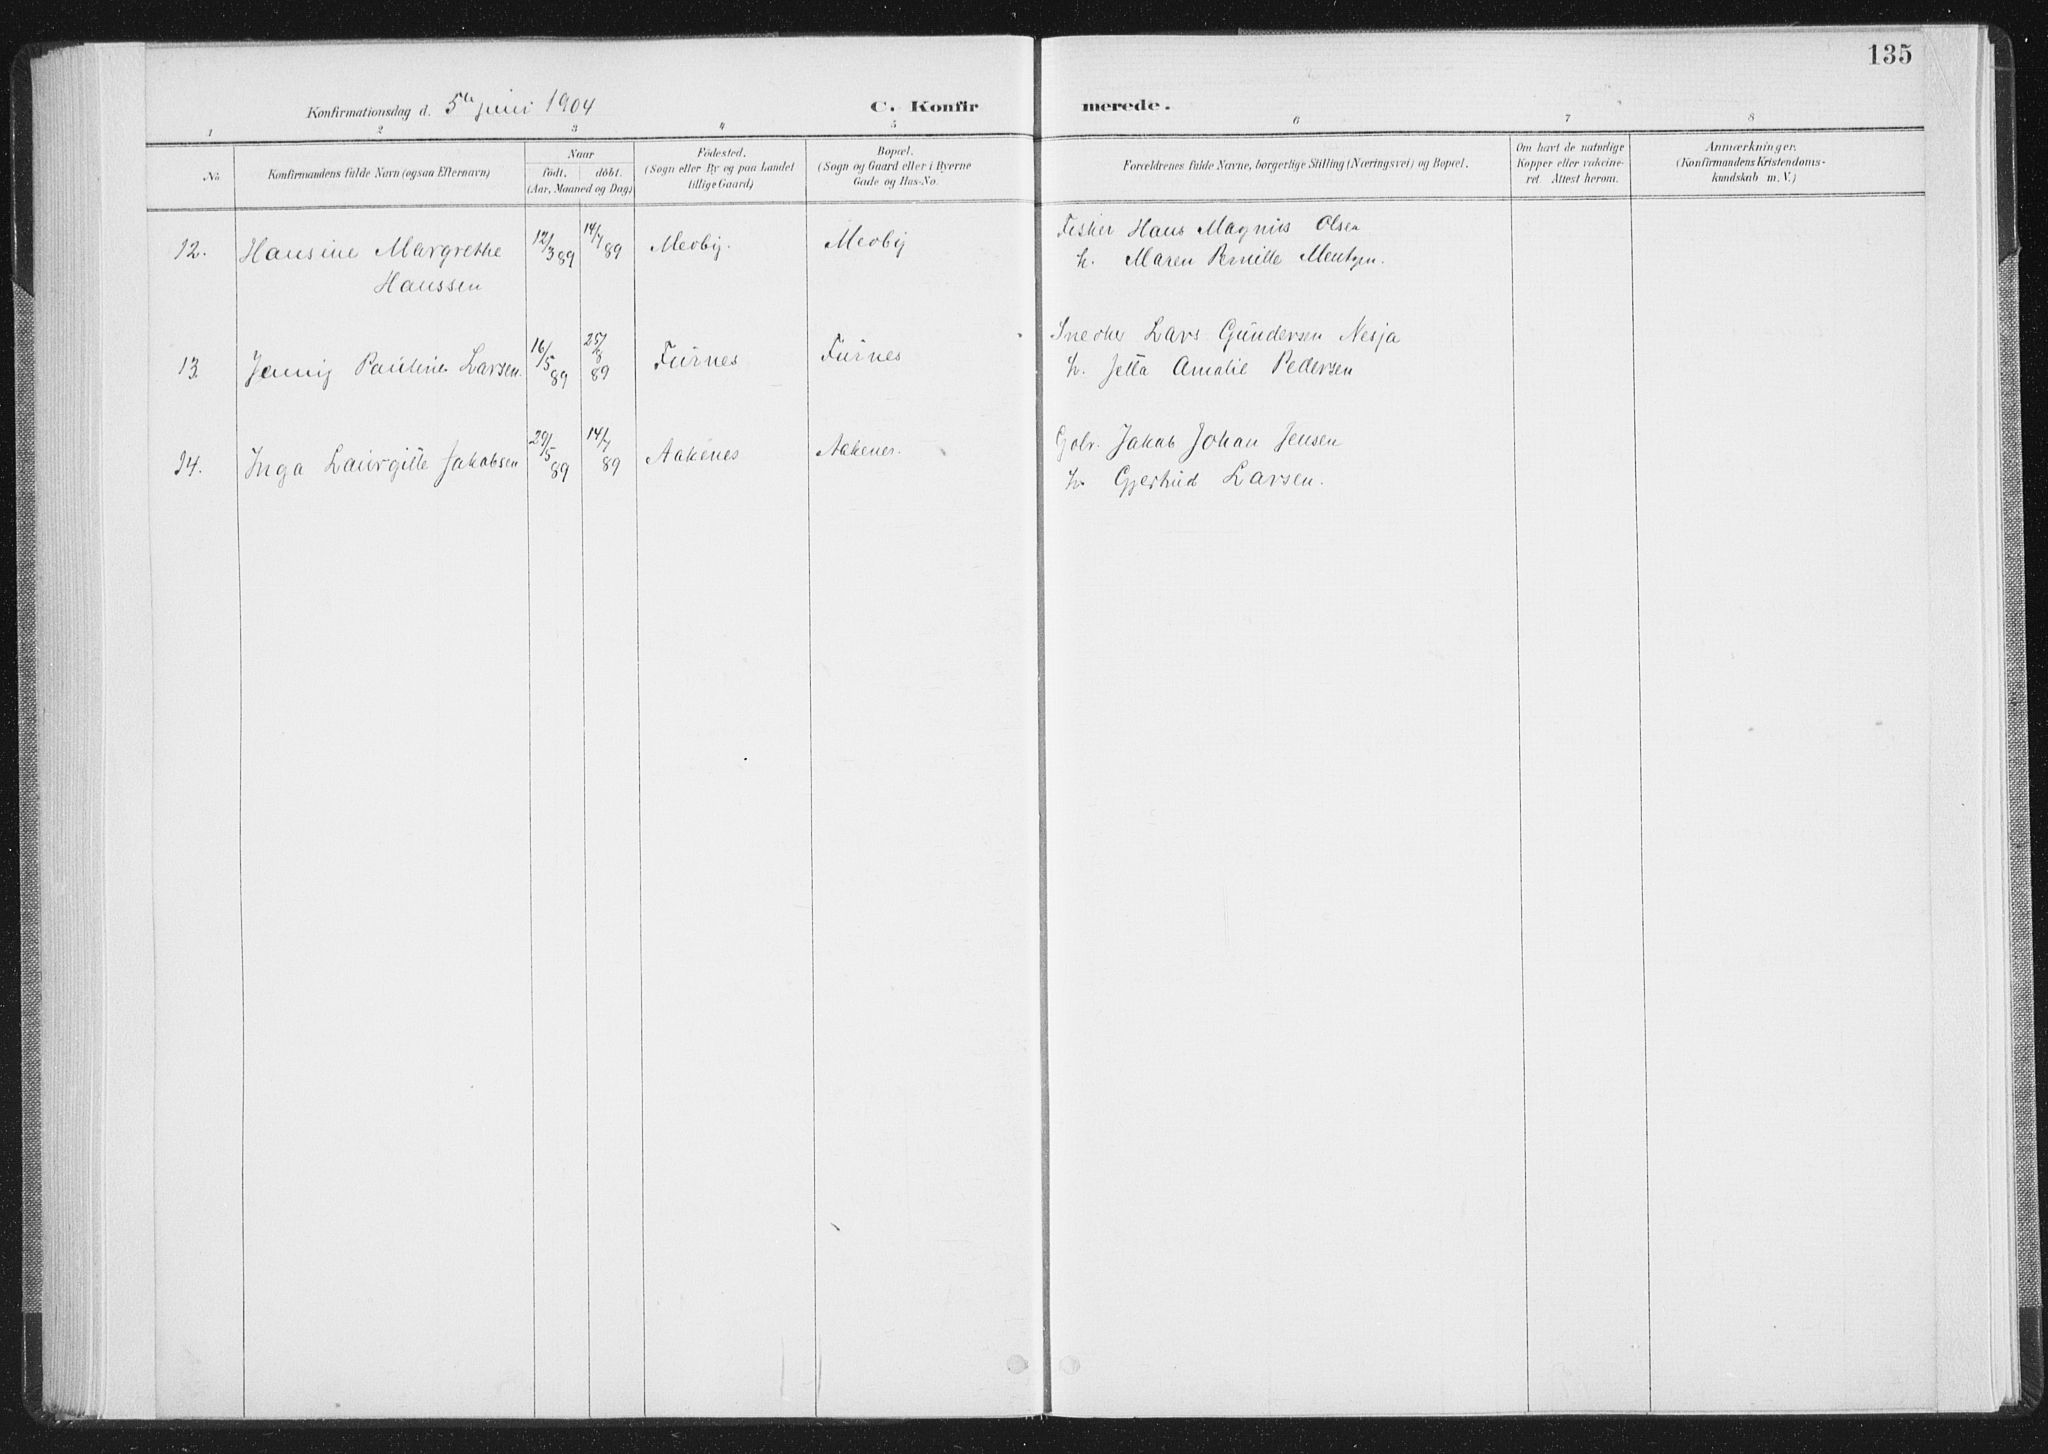 135
Konfirmationsdag d. 5te juni 1904
C. Konfirmerede.
1 2 3 4 5 6 7 8
No.
Konfirmandens fulde Navn (ogsaa Efternavn)
Naar
født. døbt.
(Aar, Maaned og Dag)
Fødested.
(Sogn eller By og paa Landet
tillige Gaard)
Bopæl.
(Sogn og Gaard eller i Byerne
Gade og Hus-No.
Forældrenes fulde Navne, borgerlige Stilling (Næringsvei) og Bopæl.
Om havt de naturlige
Kopper eller vakcine-
ret. Attest herom.
Anmærkninger.
(Konfirmandens Kristendoms-
kundskab m. V.)
12. Hansine Margrethe 12/3 89 14/7 89 Medby. Medby Fisker Hans Magnus Olsen
Hanssen h. Maren Pernille Mentzen.
13. Jenny Pauline Larsen. 16/5 89 25/8 89 Furnes Furnes Snedker Lars Gundersen Nesja
h. Jetta Amalie Pedersen
14. Inga Laurgitte Jakobsen 29/5 89 14/7 89 Aakenes Aakenes. Gbr. Jakob Johan Jensen
h. Gjertrud Larsen.